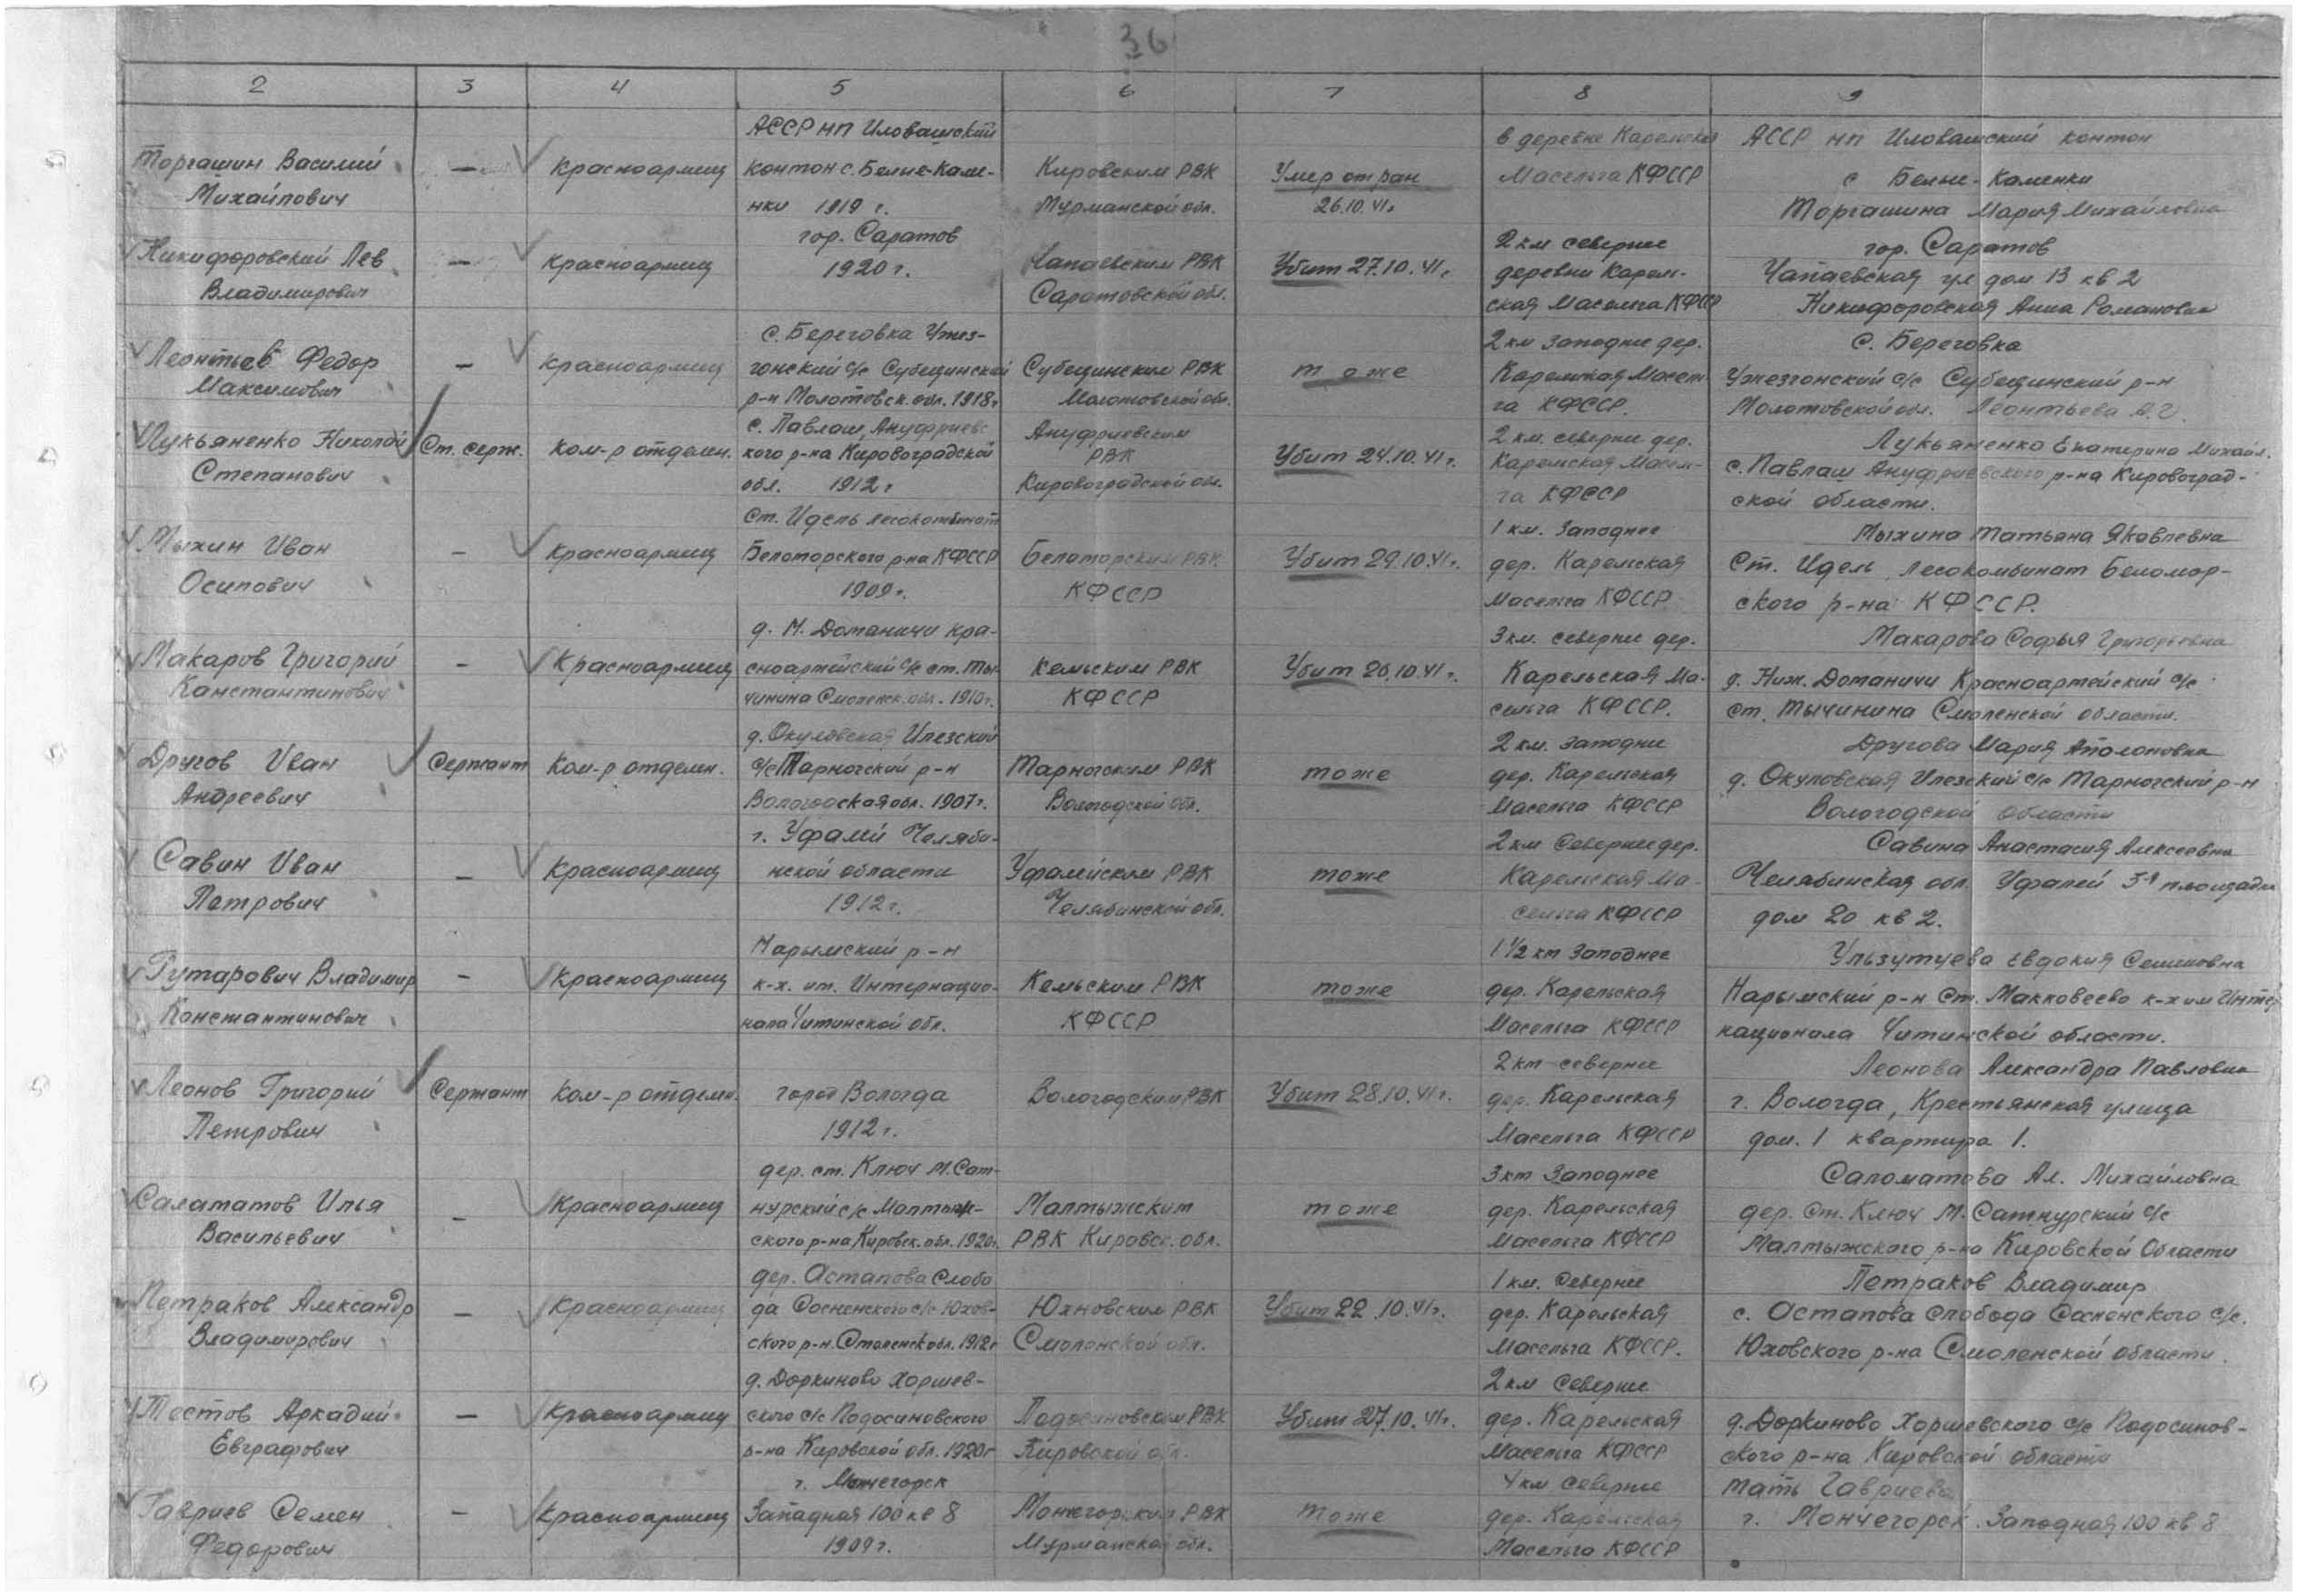 36
2 3 4 5 6 7 8 9
Торгашин Василий
Михайлович
—
Красноармеец
АССР НП Иловашский
контон с. Белые-Каме-
нки 1919 г.
Кировским РВК
Мурманской обл.
Умер от ран
26.10.41г
в деревне Карельская
Масельга КФССР
АССР НП Иловашский контон
с Белые-Каменки
Торгашина Мария Михайловна
Никифоровский Лев
Владимирович
—
Красноармеец
гор. Саратов
1920 г.
Чапаевским РВК
Саратовской обл.
Убит 27.10.41г.
2 км севернее
деревни Карель-
ская Масельга КФССР
гор. Саратов
Чапаевская ул дом 13 кв 2
Никифоровская Анна Романовна
Леонтьев Федор
Максимович
—
Красноармеец
с. Береговка Ужез-
гонский с/с Субецинский
р-н Молотовск. обл. 1918г
Субецинским РВК
Молотовской обл.
тоже
2 км западнее дер.
Карельская Масель-
га КФССР.
с. Береговка
Ужезгонский с/с Субецинский р-н
Молотовской обл. Леонтьева А.Г.
Лукьяненко Николай
Степанович
Ст. серж.
Ком-р отделен.
с. Павлаш, Ануфриевс
кого р-на Кировоградской
обл. 1912 г
Ануфриевским
РВК
Кировоградской обл.
Убит 24.10.41г.
2 км. севернее дер.
Карельская Масель-
га КФССР
Лукьяненко Екатерина Михайл.
с. Павлаш Ануфриевского р-на Кировоград-
ской области.
Мыхин Иван
Осипович
—
Красноармеец
Ст. Идель лесокомбинат
Беломорского р-на КФССР
1909 г.
Беломорским РВК
КФССР
Убит 29.10.41г.
1 км. Западнее
дер. Карельская
Масельга КФССР
Мыхина Татьяна Яковлевна
Ст. Идель, лесокомбинат Беломор-
ского р-на КФССР.
Макаров Григорий
Канстантинович
—
Красноармеец
д. Н. Доманичи Кра-
сноармейский с/с ст. Ты-
чинина Смоленск. обл. 1910г.
Кемьским РВК
КФССР
Убит 26.10.41г.
3 км. севернее дер.
Карельская Ма-
сельга КФССР.
Макарова Софья Григорьевна
д. Ниж. Доманичи Красноармейский с/с
ст. Тычинина Смоленской области.
Другов Иван
Андреевич
Сержант
Ком-р отделен.
д. Окуловская Илезский
с/с Тарногский р-н
Вологодская обл. 1907г.
Тарногским РВК
Вологодской обл.
тоже
2 км. западнее
дер. Карельская
Масельга КФССР
Другова Мария Аполоновна
д. Окуловская Илезский с/с Тарногский р-н
Вологодской области
Савин Иван
Петрович
—
Красноармеец
г. Уфалей Челяби-
нской области
1912 г.
Уфалейским РВК
Челябинской обл.
тоже
2 км Севернее дер.
Карельская Ма-
сельга КФССР
Савина Анастасия Алексеевна
Челябинская обл. Уфалей 5-я площадь
дом 20 кв 2.
Гутарович Владимир
Константинович
—
Красноармеец
Нарымский р-н
к-х. им. Интернацио-
нала Читинской обл.
Кемьским РВК
КФССР
тоже
1 1/2 км Западнее
дер. Карельская
Масельга КФССР
Ульзутуева Евдокия Семеновна
Нарымский р-н Ст. Макковеево к-х им Интер
национала Читинской области.
Леонов Григорий
Петрович
Сержант
Ком-р отделен.
город Вологда
1912 г.
Вологодским РВК
Убит 28.10.41г.
2 км севернее
дер. Карельская
Масельга КФССР
Леонова Александра Павловна
г. Вологда, Крестьянская улица
дом. 1 квартира 1.
Саламатов Илья
Васильевич
—
Красноармеец
дер. ст. Ключ М. Сат-
нурский с/с Малтыж-
ского р-на Кировск. обл. 1920г.
Малтыжским
РВК Кировск. обл.
тоже
3 км Западнее
дер. Карельская
Масельга КФССР
Саломатова Ал. Михайловна
дер. Ст. Ключ М. Сатнурский с/с
Малтыжского р-на Кировской Области
Петраков Александр
Владимирович
—
Красноармеец
дер. Астапова Слобо
да Сосненского с/с Юхов-
ского р-н. Смоленск обл. 1912г
Юхновским РВК
Смоленской обл.
Убит 22.10.41г.
1 км. Севернее
дер. Карельская
Масельга КФССР.
Петраков Владимир
с. Остапова Слобода Сасненского с/с.
Юховского р-на Смоленской области.
Тестов Аркадий
Евграфович
—
Красноармеец
д. Доркиново Хоршев-
ского с/с Подосиновского
р-на Кировской обл. 1920г
Подосиновским РВК
Кировской обл.
Убит 27.10.41г.
2 км Севернее
дер. Карельская
Масельга КФССР
д. Доркиново Хоршевского с/с Подосинов-
ского р-на Кировской области
Гавриев Семен
Федорович
—
Красноармеец
г. Мончегорск
Западная 100 кв 8
1909 г.
Мончегорским РВК
Мурманской обл.
тоже
4 км Севернее
дер. Карельская
Масельга КФССР
мать Гавриева
г. Мончегорск. Западная 100 кв 8